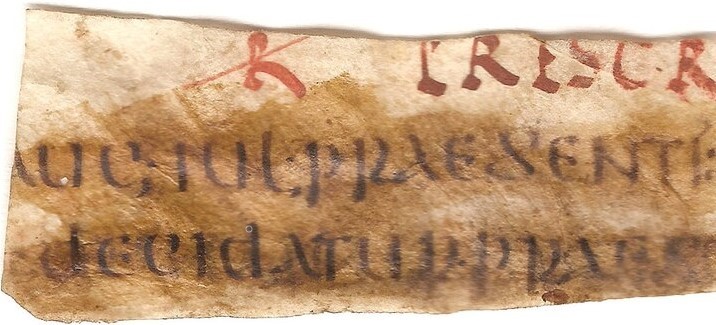 k PRESC·R
AUG·IUL·PRAESENTE
decidatur·praes